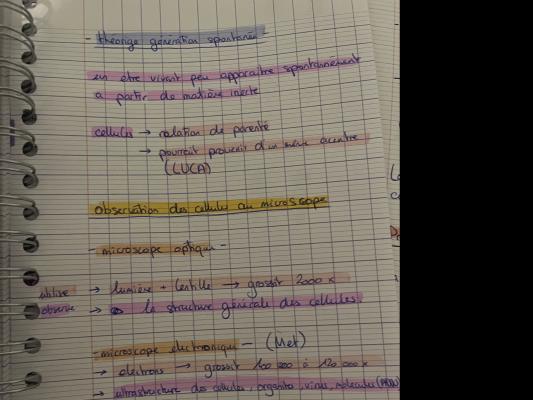 - théorie génération spontanée -
un être vivant peu apparaître spontanément
a partir de matière inerte
cellules → relation de parenté
→ pourrait provenir d'un même ancêtre
(LUCA)
observation des cellules au microscope
- microscope optique -
utilise → lumière + lentille → grossit 2000 x
observe → la structure générale des cellules
- microscope electronique - (Met)
→ electrons → grossit 100 000 à 120 000 x
→ ultrastructure des cellules, organites, virus, molécules